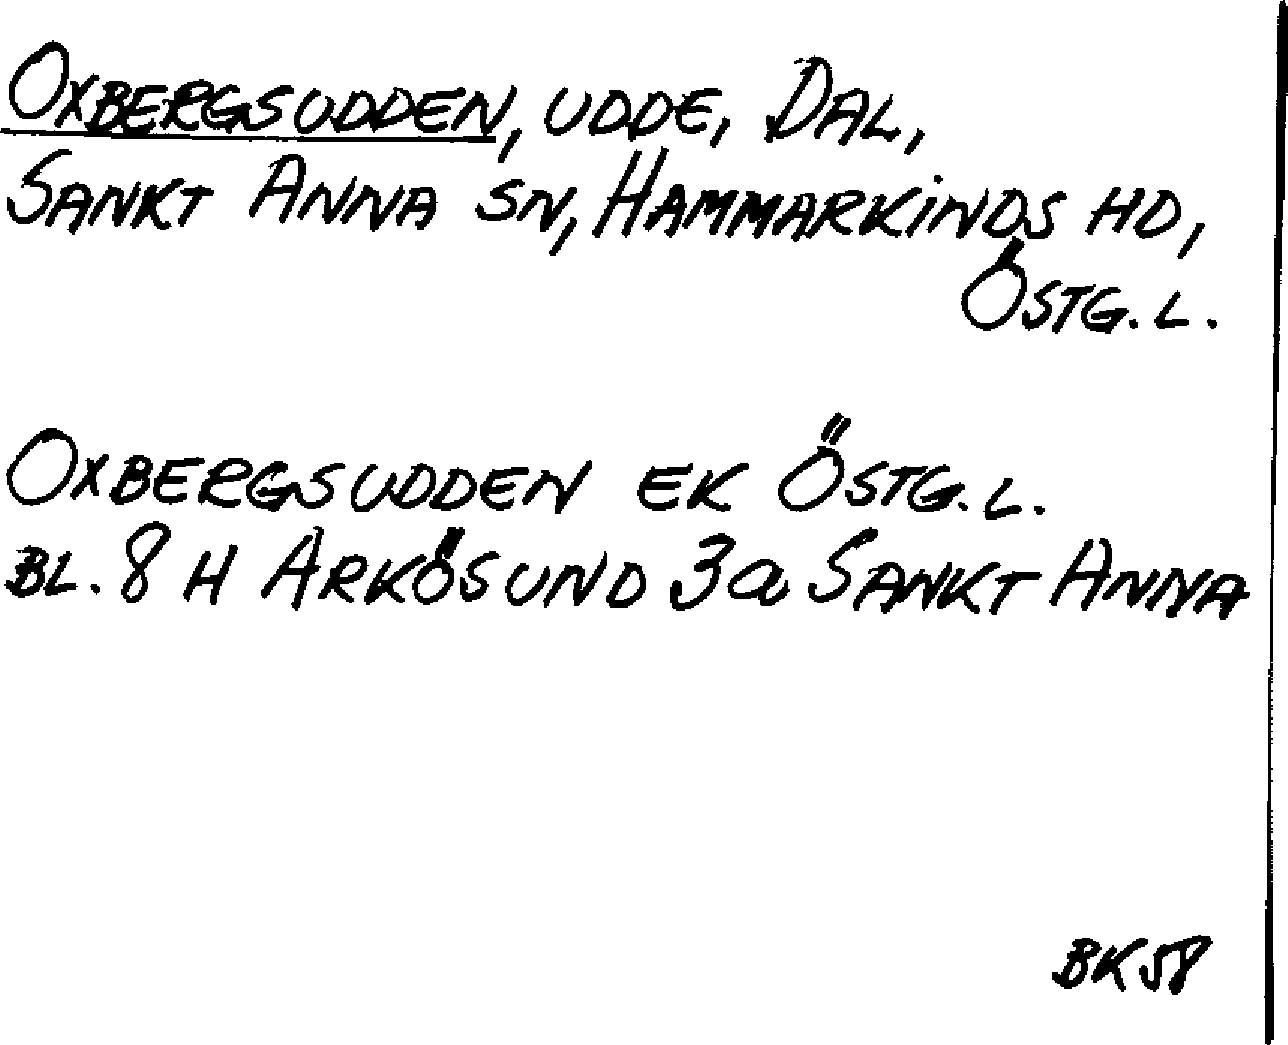 OXBERGSUDDEN, UDDE, DAL,
SANKT ANNA SN, HAMMARKINDS HD,
ÖSTG. L.
OXBERGSUDDEN EK ÖSTG. L.
BL. 8 H ARKÖSUND 3a SANKT ANNA
BK 58